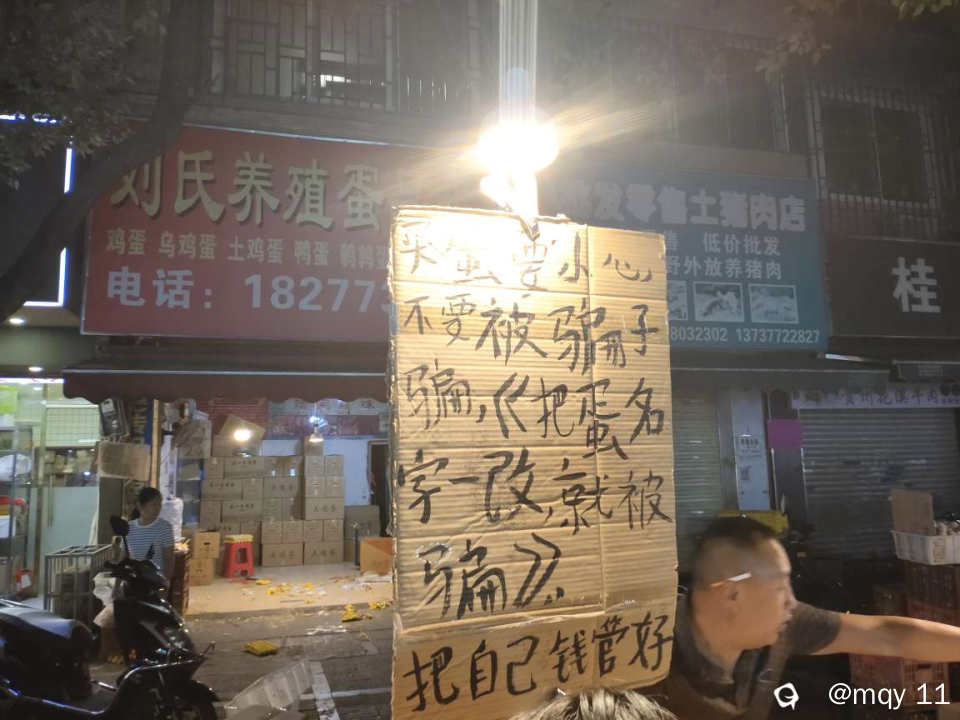 刘氏养殖蛋
鸡蛋 乌鸡蛋 土鸡蛋 鸭蛋 鹌鹑
电话：18277
批发零售土猪肉店
低价批发
野外放养猪肉
8032302 13737722827
桂
买蛋要小心
不要被骗子
骗，《把蛋名
字一改，就被
骗》.
把自己钱管好
@mqy 11